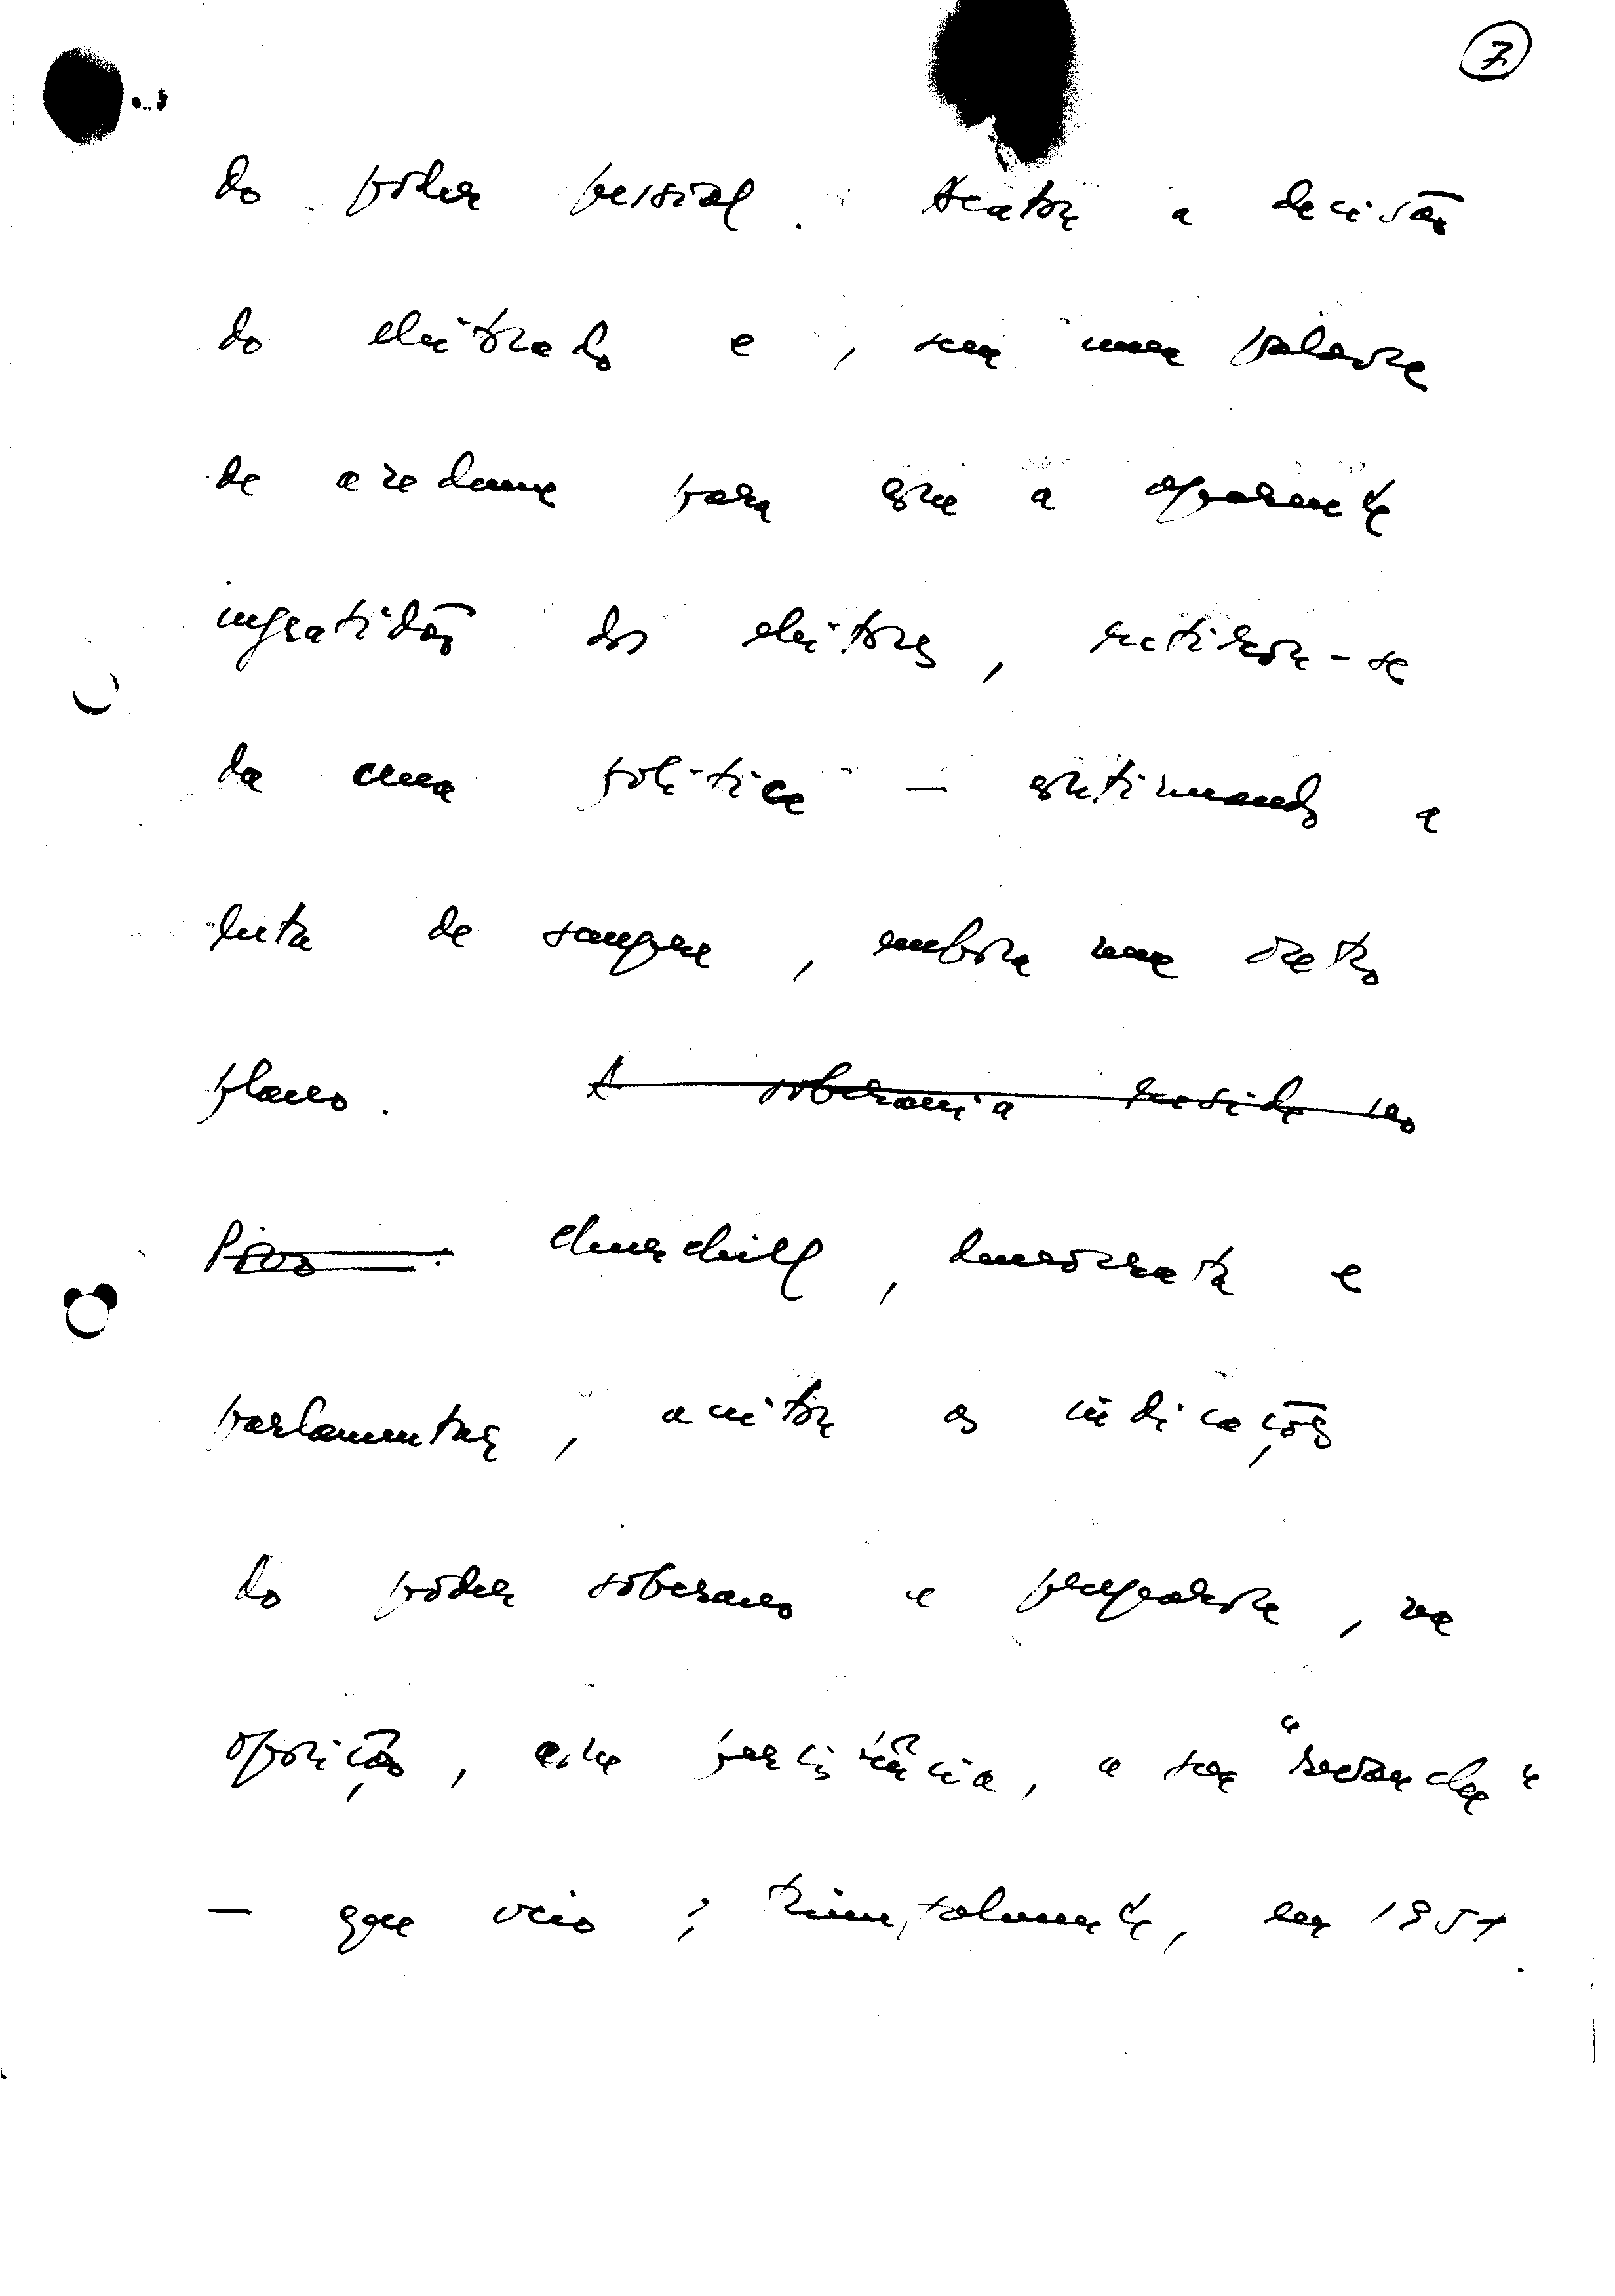 7
do poder pessoal. Acatou a decisão
do eleitorado e, sem uma palavra
de azedume para com a aparente
ingratidão dos eleitores, retirou-se
da cena política — continuando a
luta de sempre, embora em outro
plano. A soberania reside no
Povo. Churchill, democrata e
parlamentar, aceitou as indicações
do poder soberano e preparou, na
oposição, com persistência, a sua "revanche"
— que veio, triunfalmente, em 1951.